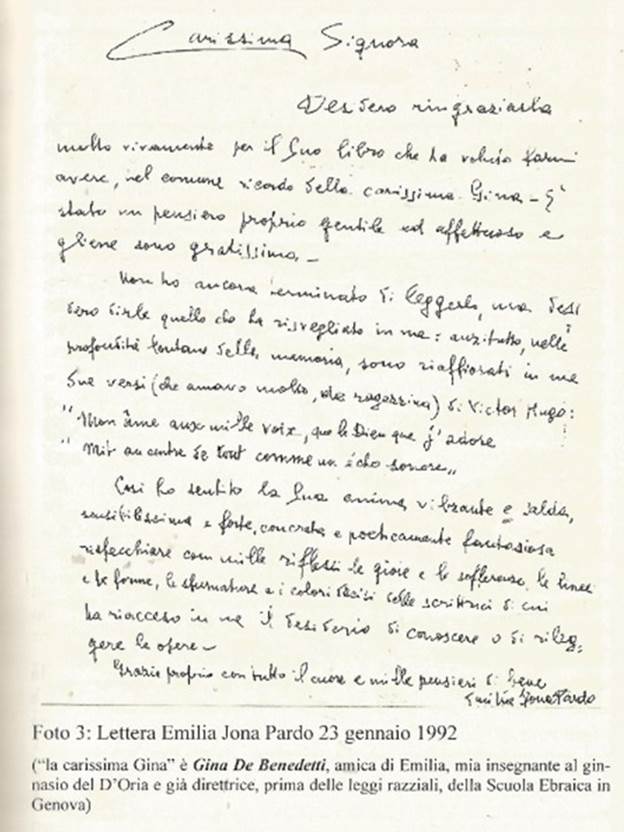 Carissima Signora
Desidero ringraziarla
molto vivamente per il Suo libro che ha voluto farmi
avere, nel comune ricordo della carissima Gina - È
stato un pensiero proprio gentile ed affettuoso e
gliene sono gratissima -
Non ho ancora terminato di leggerlo, ma desi
dero dirle quello che ha risvegliato in me: anzitutto, nelle
profondità lontane della memoria, sono riaffiorati in me
due versi (che amavo molto, da ragazzina) di Victor Hugo:
"Mon âme aux mille voix, que le Dieu que j'adore
" Mit au centre de tout comme un écho sonore„
Così ho sentito la Sua anima, vibrante e salda,
sensibilissima e forte, concreta e poeticamente fantasiosa
rispecchiare con mille riflessi le gioie e le sofferenze, le linee
e le forme, le sfumature e i colori decisi delle scrittrici di cui
ha riacceso in me il desiderio di conoscere o di rileg=
gere le opere -
Grazie proprio con tutto il cuore e mille pensieri di bene
Emilia Jona Pardo
Foto 3: Lettera Emilia Jona Pardo 23 gennaio 1992
("la carissima Gina" è Gina De Benedetti, amica di Emilia, mia insegnante al gin-
nasio del D'Oria e già direttrice, prima delle leggi razziali, della Scuola Ebraica in
Genova)